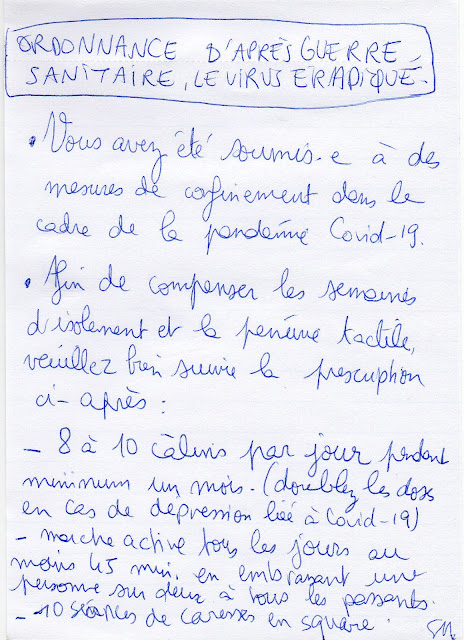 ORDONNANCE D'APRÈS GUERRE
SANITAIRE, LE VIRUS ERADIQUÉ.
• Vous avez été soumis.e à des
mesures de confinement dans le
cadre de la pandémie Covid-19.
• Afin de compenser les semaines
d'isolement et la pénurie tactile,
veuillez bien suivre la prescription
ci-après :
- 8 à 10 câlins par jour pendant
minimum un mois. (doublez les doses
en cas de dépression liée à Covid-19)
- marche active tous les jours au
moins 45 min. en embrassant une
personne sur deux à tous les passants.
- 10 séances de caresses en square.